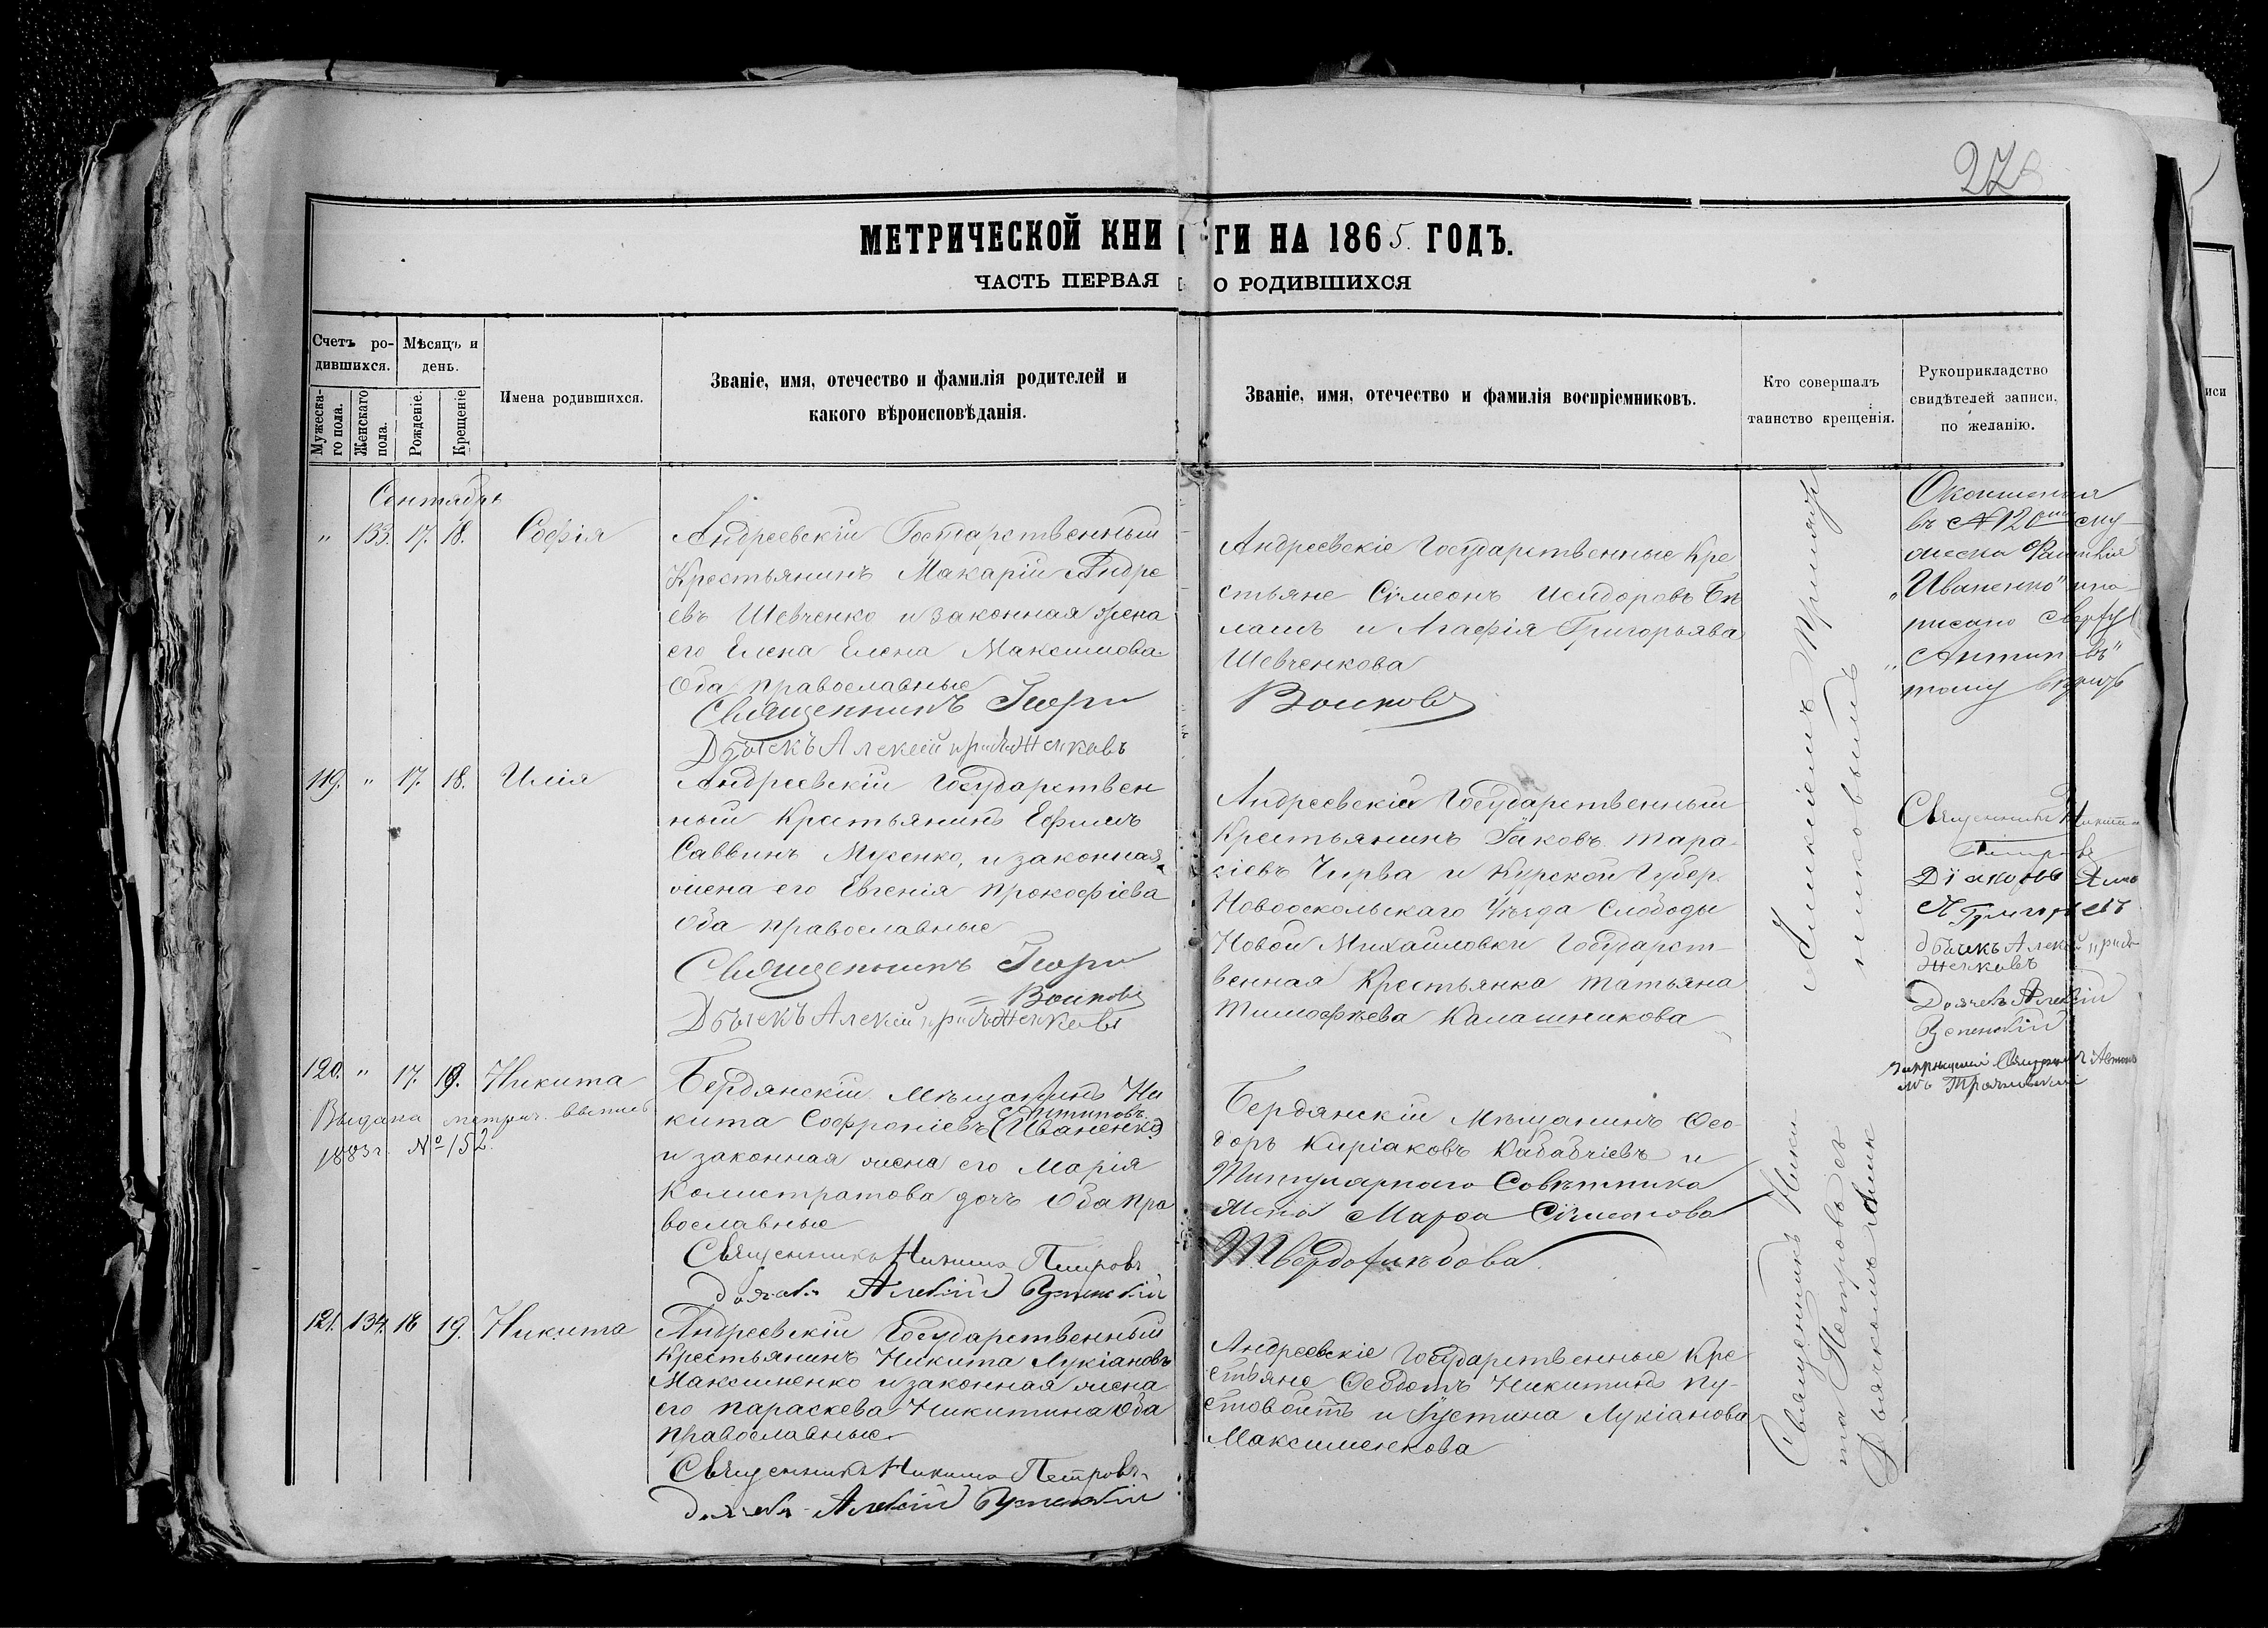 278
МЕТРИЧЕСКОЙ КНИГИ НА 1865. ГОДЪ.
ЧАСТЬ ПЕРВАЯ О РОДИВШИХСЯ
Счетъ родившихся.
Мужескаго пола.
Женскаго пола.
Мѣсяцъ и день.
Рожденіе.
Крещеніе
Имена родившихся.
Званіе, имя, отечество и фамилія родителей и
какого вѣроисповѣданія.
Званіе, имя, отечество и фамилія воспріемниковъ.
Кто совершалъ
таинство крещенія.
Рукоприкладство
свидѣтелей записи,
по желанію.
Сентябрь
" 133. 17. 18. Софія
Андреевскій Государственный
Крестьянинъ Макарій Андре
евъ Шевченко и законная жена
его Елена Елена Максимова
Оба православные
Священникъ Георгій
Дьячекъ Алексій
Андреевскіе Государственные Кре
стьяне Сімеонъ Исидоровъ
и Агафія Григорьява
Шевченкова
Воиновъ
въ №120
"Иваненко"
писано сверху
"Антиповъ"
тому
119. " 17. 18. Илія
Андреевскій Государствен
ный Крестьянинъ Ефимъ
Саввинъ Мусенко, и законная
жена его Евгенія Прокофіева
Оба православные
Священникъ Георгій
Воиновъ
Дьячекъ Алексій
Андреевскій Государственный
Крестьянинъ Іаковъ Тара
сіевъ Чирва и Курской Губер.
Новооскольскаго Уѣзда Слободы
Новой Михайловки Государст
венная Крестьянка Татьяна
Тимофѣева Калашникова
Священникъ Никита
Петровъ
Діаконъ
Григорьевъ
Дьячекъ Алексій
Дьячекъ Алексій
Успенскій
120. " 17. 19. Никита
Выдана метрич. выпись
1883 г. № 152.
Бердянскій Мѣщанинъ Ни
Антиповъ
кита Софроніевъ (Иваненко)
и законная жена его Марія
Калистратова дочь Оба пра
вославные
Священникъ Никита Петровъ
Дьячекъ Алексій Успенскій
Бердянскій Мѣщанинъ Ѳео
доръ Киріаковъ Кабабчіевъ и
Титулярнаго Совѣтника
жена Марѳа Сімеонова
Твердохлѣбова
121. 134. 18 19. Никита
Андреевскій Государственный
Крестьянинъ Никита Лукіановъ
Максименко и законная жена
его Параскева Никитина Оба
православные.
Священникъ Никита Петровъ
Дьячекъ Алексій Успенскій
Андреевскіе Государственные Кре
стьяне Ѳеодотъ Никитинъ Пу-
стовойтъ и Іустина Лукіанова
Максименкова
Священникъ Ники
та Петровъ съ
Дьячкомъ